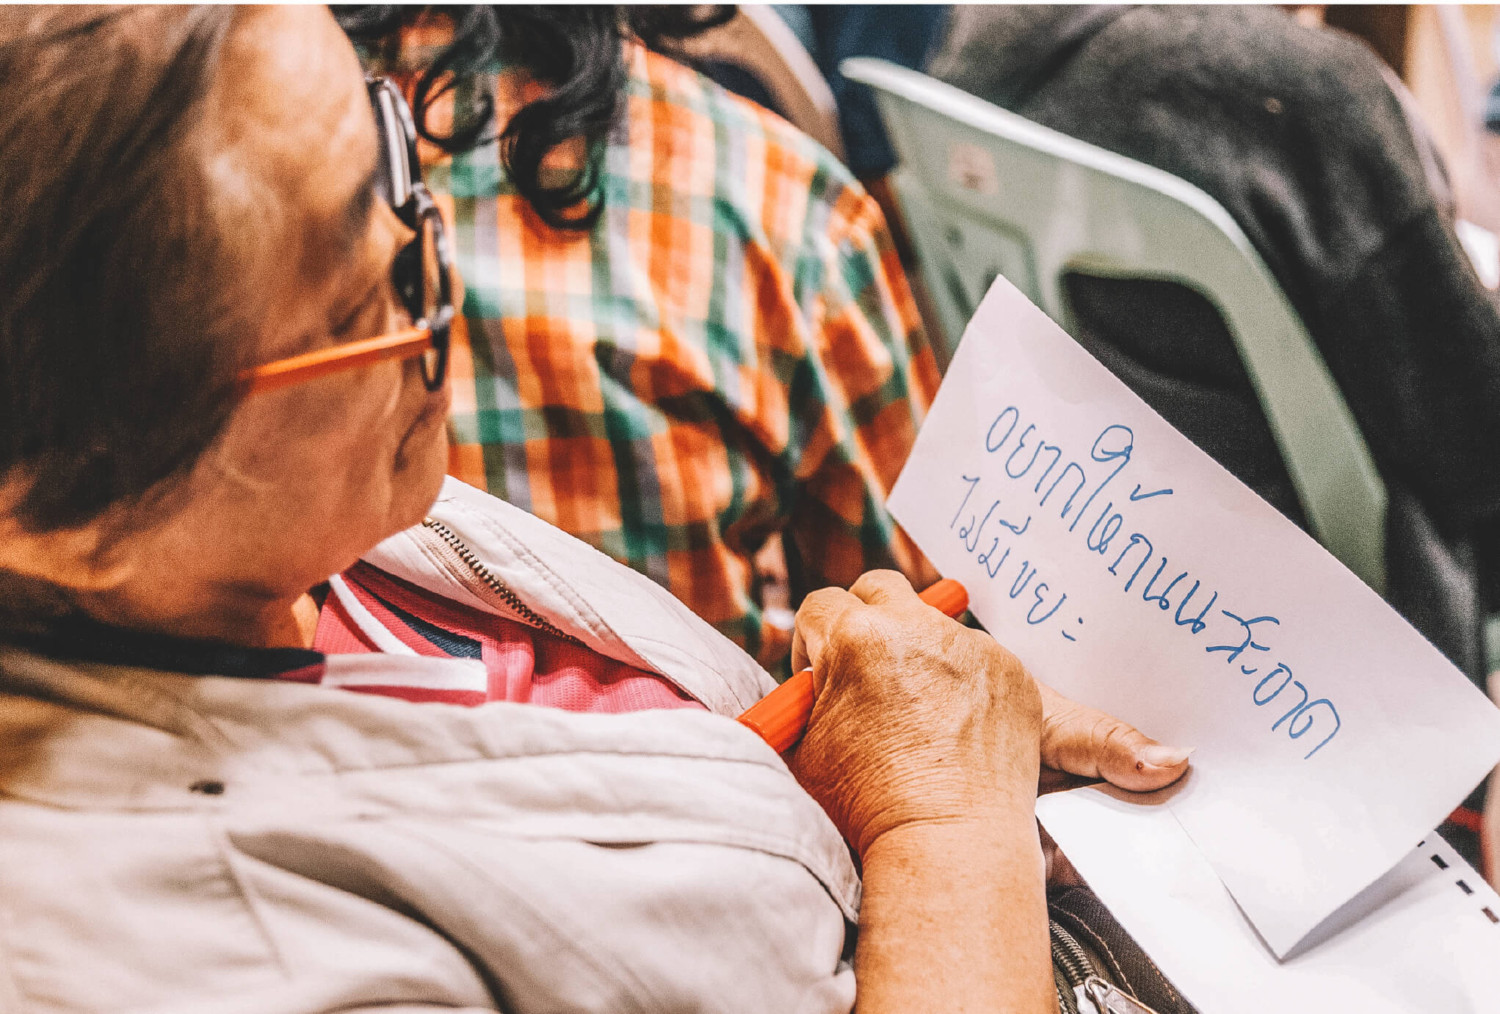 อยากให้ถนนสะอาด
ไม่มีขยะ